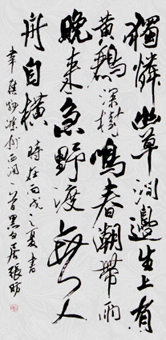 獨憐幽草澗邊生上有
黃鸝深樹鳴春潮帶雨
晚來急野渡無人
舟自橫 時在丙戌之夏書
韋應物滁州西澗一首黑白居張